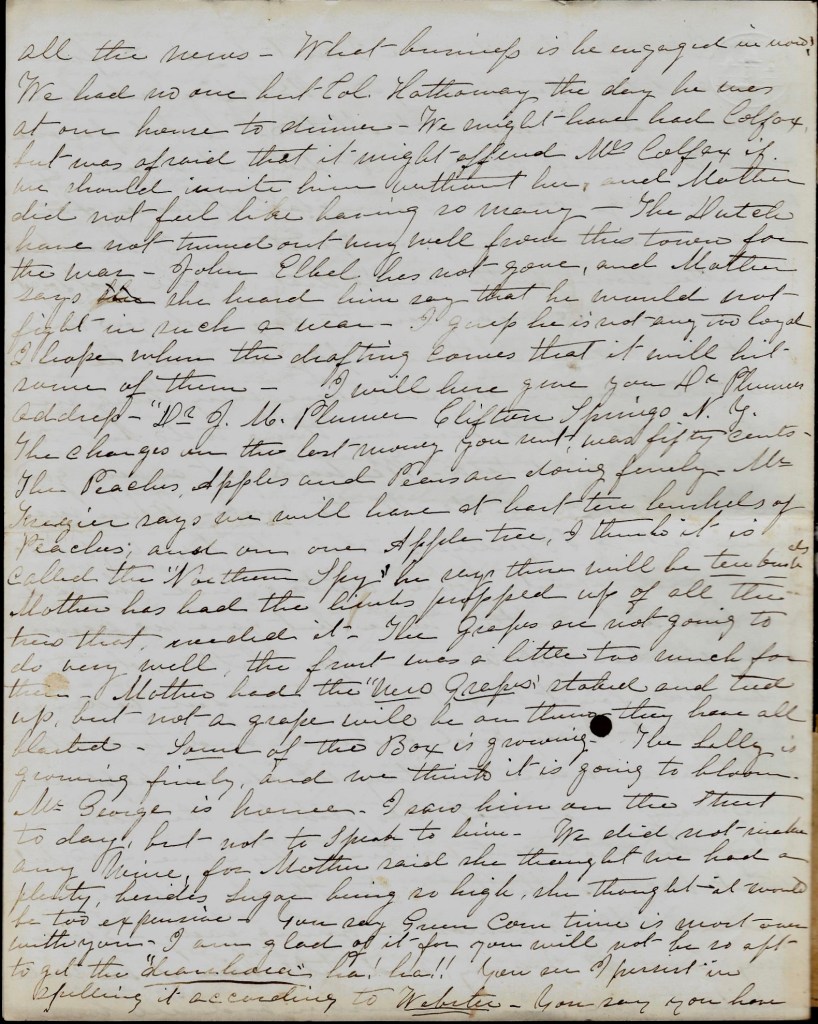 all the news – What business is he engaged in now?
We had no one but Col. Hathaway the day he was
at our house to dinner – We might have had Colfax,
but was afraid that it might offend Mrs Colfax if
we should invite him without her, and Mother
did not feel like having so many – The Dutch
have not turned out very well from this town for
the war – John Elbel has not gone, and Mother
says she heard him say that he would not
fight in such a war – I guess he is not any too loyal
I hope when the drafting comes that it will hit
some of them – I will here give you Dr Plumers
address – "Dr J. M. Plumer Clifton Springs N. Y.
The changes on the last money you sent, was fifty cents –
The Peaches, Apples and Pears are doing finely – Mr
Frazier says we will have at least ten bushels of
Peaches; and on one Apple tree, I think it is
called the "Northern Spy", he says there will be ten bushels
Mother has had the limbs propped up of all the
trees that needed it – The Grapes are not going to
do very well, the frost was a little too much for
them – Mother had the "New Grapes" staked and tied
up, but not a grape will be on them they have all
blasted – Some of the Box is growing – The Lilly is
growing finely, and we think it is going to bloom –
Mr George is home – I saw him on the Street
to day, but not to speak to him – We did not make
any Wine, for Mother said she thought we had a
plenty, besides sugar being so high, she thought it would
be too expensive – You say Green Corn time is most over
with you – I am glad of it for you will not be so apt
to get the "diarrhoea" ha! ha!! You see I persist in
spelling it according to Webster – You say you have